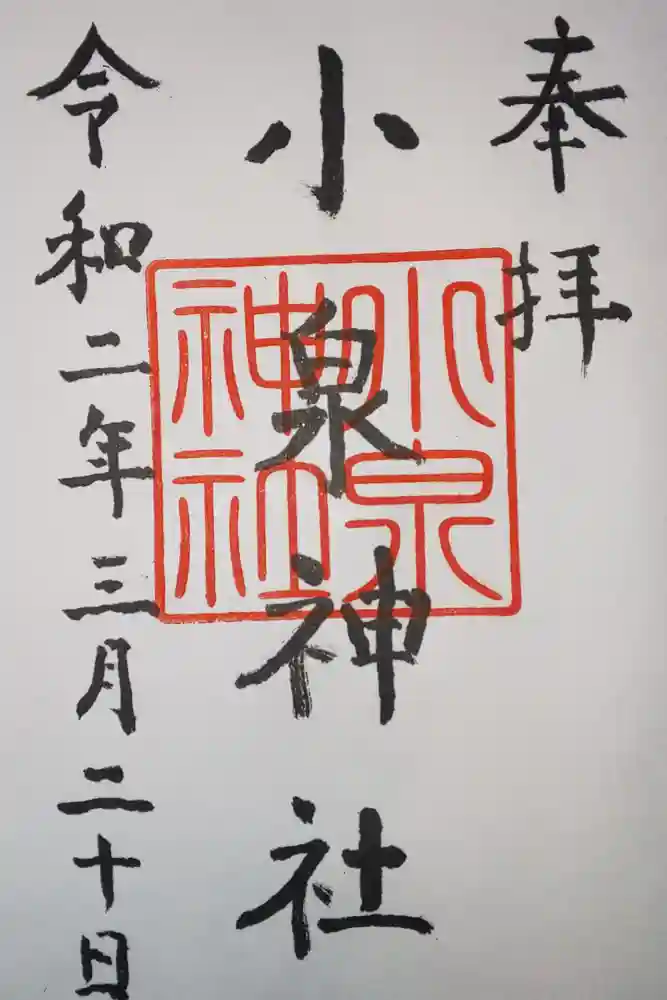 奉拝
小泉神社
小泉
神社
令和二年三月二十日